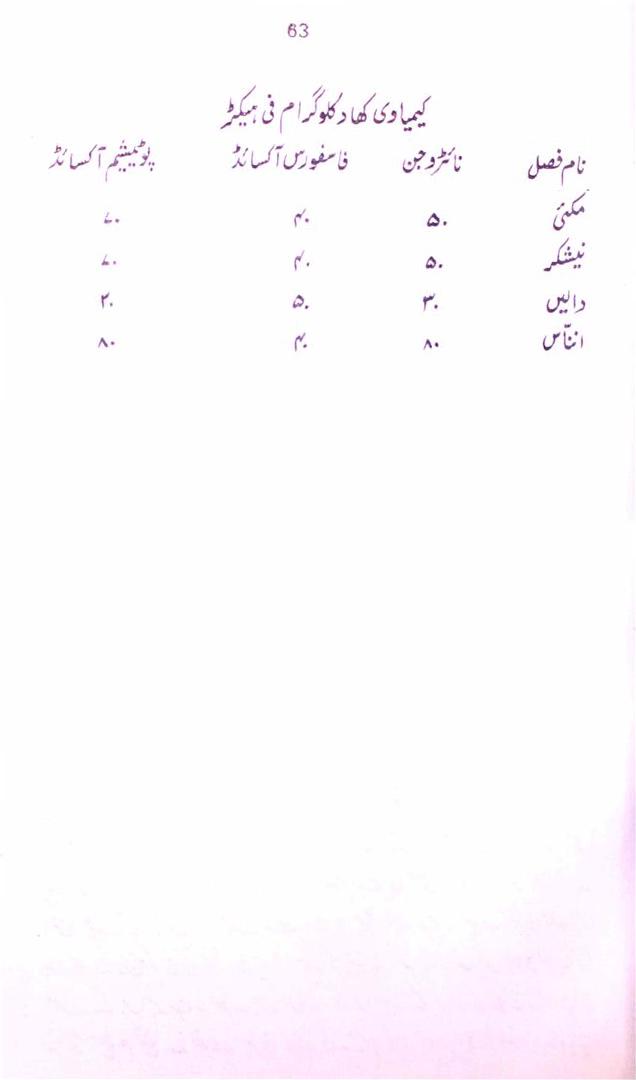 63
کیمیاوی کھاد کلوگرام فی ہیکٹر
نام فصل نائٹروجن فاسفورس آکسائڈ پوٹیشیم آکسائڈ
مکئی ۵۰ ۴۰ ۷۰
نیشکر ۵۰ ۴۰ ۷۰
دالیں ۳۰ ۵۰ ۲۰
انناّس ۸۰ ۴۰ ۸۰